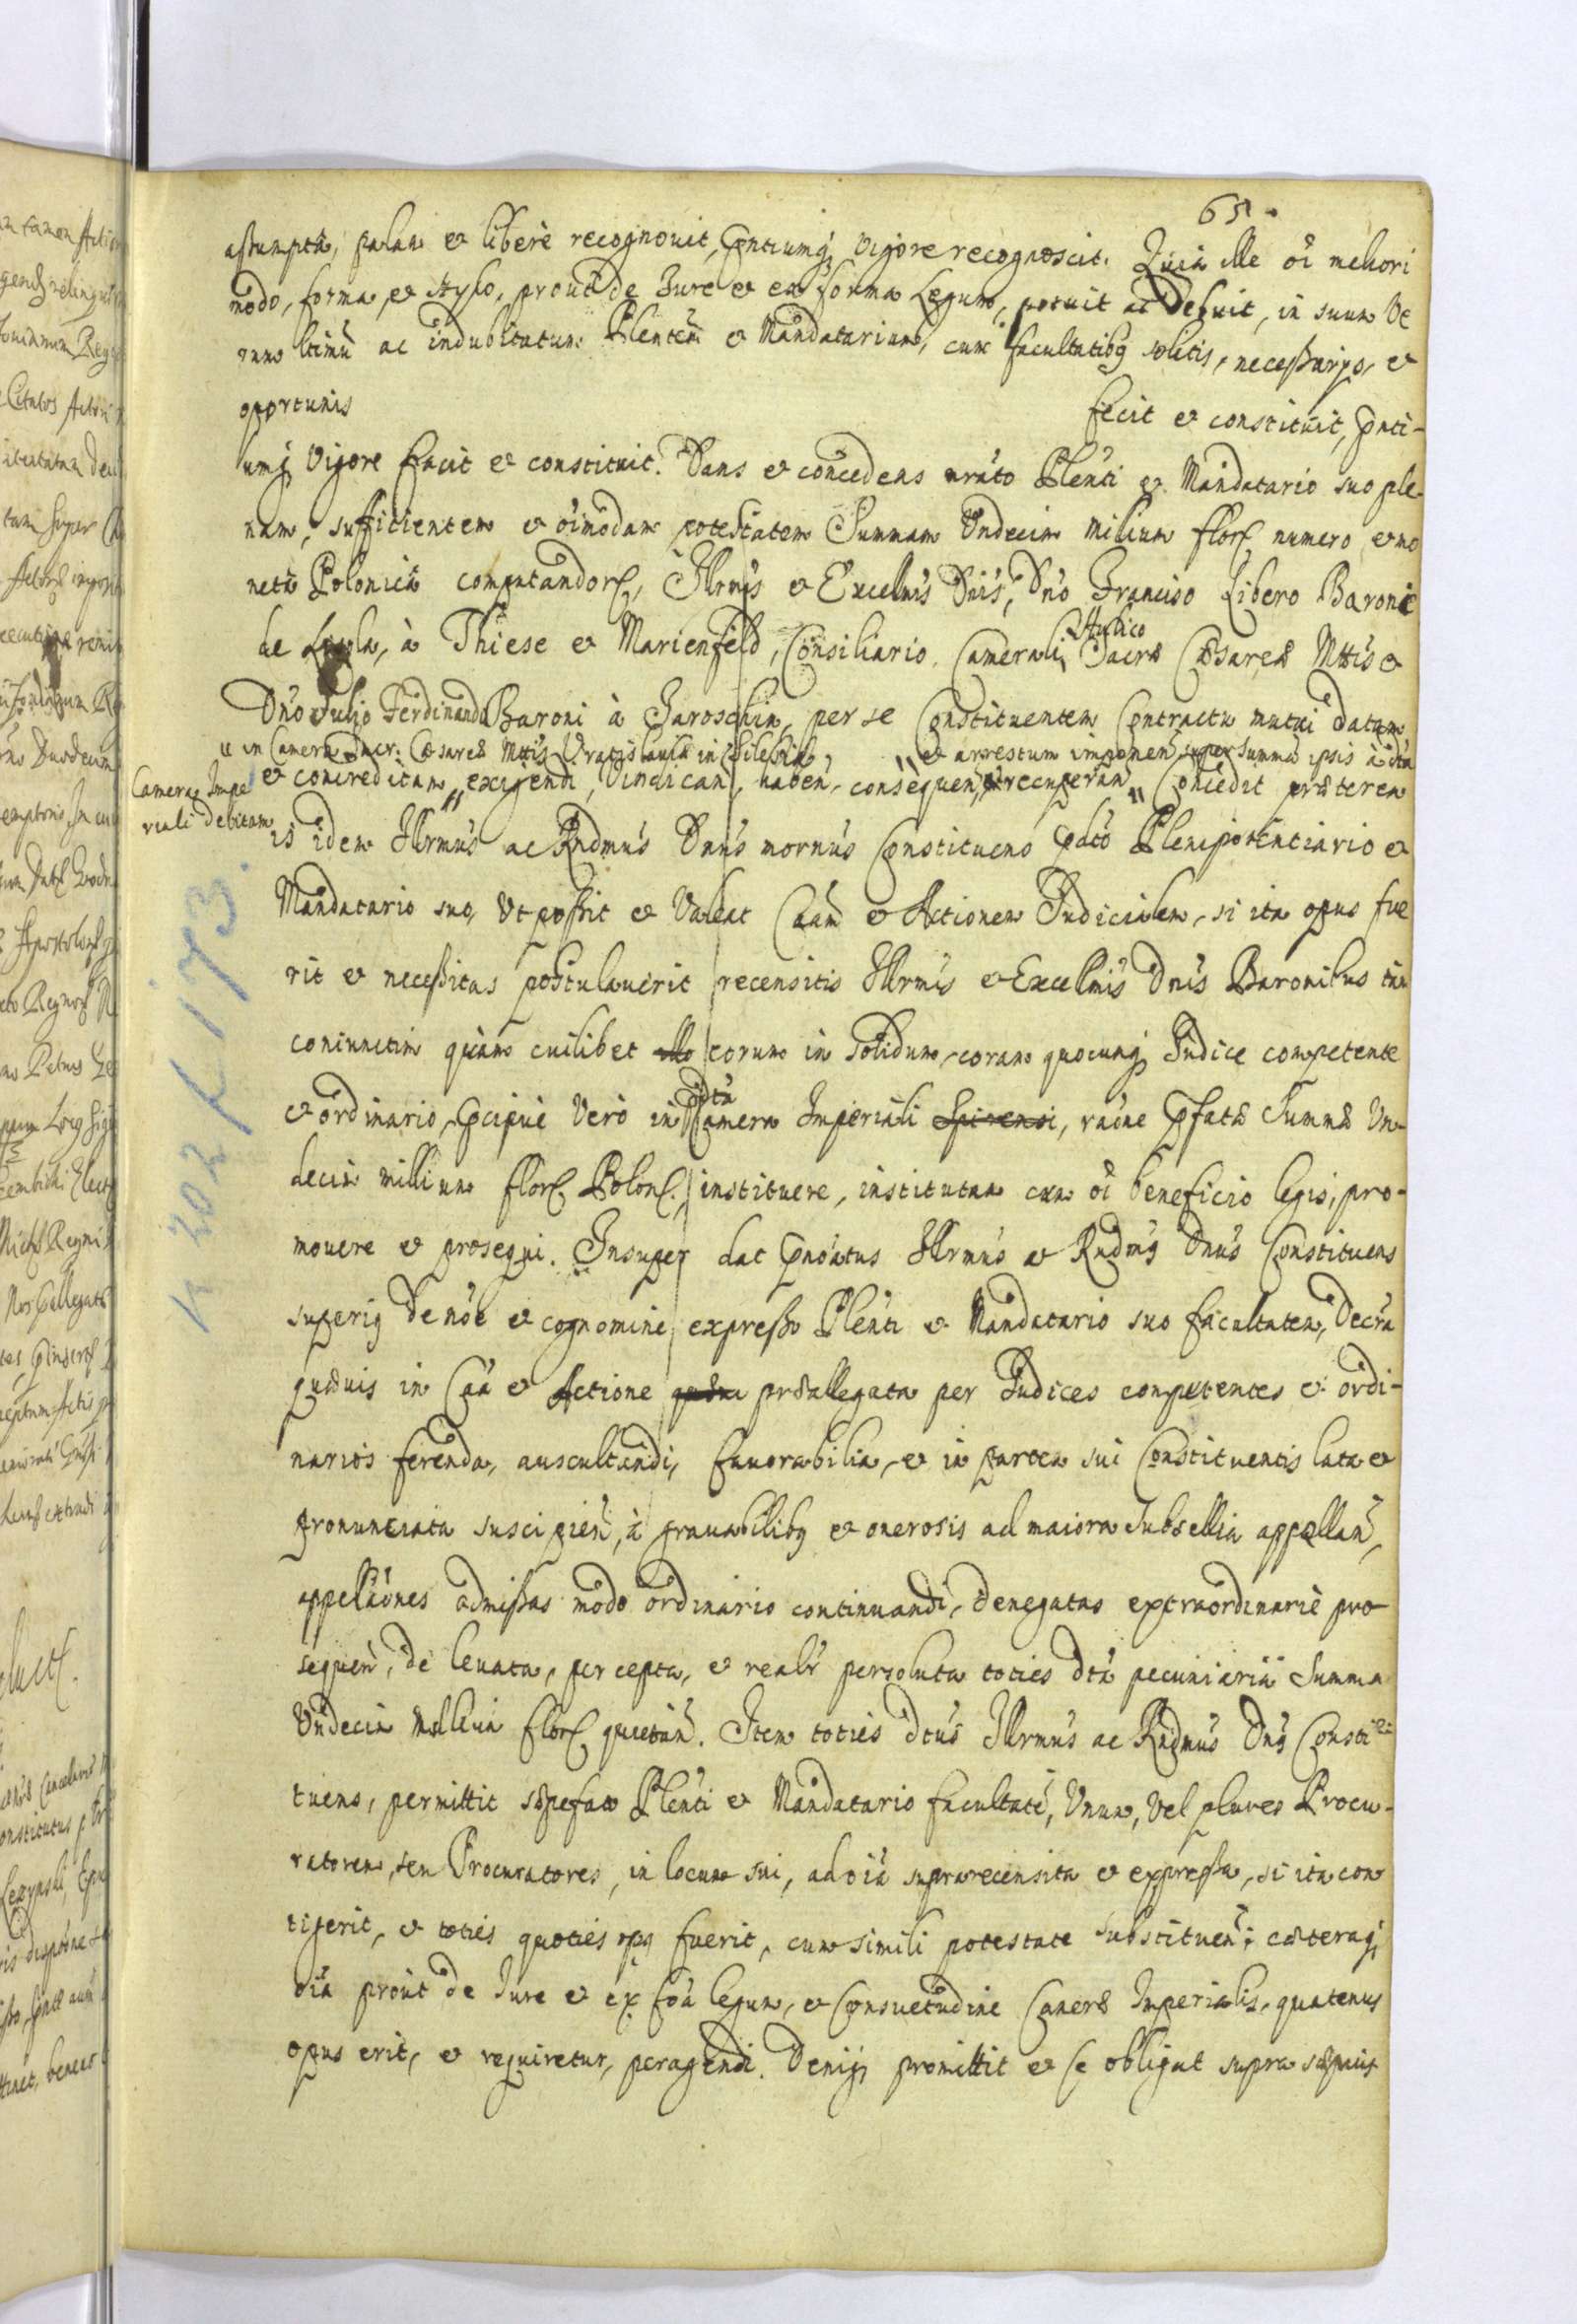 65.
assumpta, palam et libere recognovit, pntiumq Vigore recognoscit. Quia ille oi meliori
modo, forma, et stylo, prout de Jure et ex forma Legum, potuit ac Debuit, in suum Ve
rum ltimu ac indubitatum Plentem et Mandatarium, cum facultatibq solitis, necessarijs, et
oportunis fecit et constituit, pnti-
umq Vigore facit et constituit. Dans et concedens mrato Plenti et Mandatario suo ple
nam, sufficientem et oimodam potestatem Summam Undecim Milium flor numero et mo
neta Polonica computandor, Illrmis et Excellmis Dnis, Dno Franciso Libero Baroni
de , à Thiese et Marienfeld, Consiliario Camerali Aulico Sacræ Cæsareæ Mttis et
Dno Julio Ferdinando Baroni à Jaroschin, per se Constituentem Contractu mutui datam
" in Camera Sacr: Cæsareæ Mttis Vratislaviæ in Silesia, " et arrestum imponen super summa ipsis à
Cameræ Impe
riali debitam
et concreditam " exigendi, Vindican, haben, consequen, et recuperan " Concedit præterea
is idem Illrmus ac Rndmus Dnus mornus Constituens pdcto Plenipotentiario et
Mandatario suo, Ut possit et Valeat Cam et Actionem Judicialem, si ita opus fue
rit et necessitas postulaverit recensitis Illrmis et Excellmis Dnis Baronibus tam
coniunctim quam cuilibet illo eorum in solidum, coram quocunq Judice competente
et ordinario, pcipue Vero in dta Camera Imperiali Spirensi, raone pfatæ Summæ Un
decim millium flor Polon, instituere, institutam cum oi beneficio legis, pro-
movere et prosequi. Insuper dat pnoatus Illrmus et Rndmq Dnus Constituens
superiq de noe et cognomine expresso Plenti et Mandatario suo facultatem, Decra
quævis in Caa et Actione præallegata per Judices competentes et ordi-
narios ferenda, auscultandi, favorabilia, et in partem sui Constituentis lata et
pronunciata suscipien, à gravabilibq et onerosis ad maiora Subsellia appellan,
appellaones admissas modo ordinario continuandi, denegatas extraordinariè pro
sequen, de levata, percepta, et realr persoluta toties dta pecuniaria Summa
Undecim Millium flor quietan. Item toties dtus Illrmus ac Rndmus Dnq Consti
tuens, permittit sæpefato Plenti et Mandatario facultate, Unum, Vel plures Procu-
ratorem, seu Procuratores, in locum sui, ad oia suprarecensita et expressa, si ita con
tigerit, et toties quoties opq fuerit, cum simili potestate substituen; cæteraq
oia prout de Jure et ex foa legum, et Consuetudine Cameræ Imperialis, quatenus
opus erit, et requiretur, peragendi. Deniq promittit et se obligat supra sæpius
K 202 f 173.